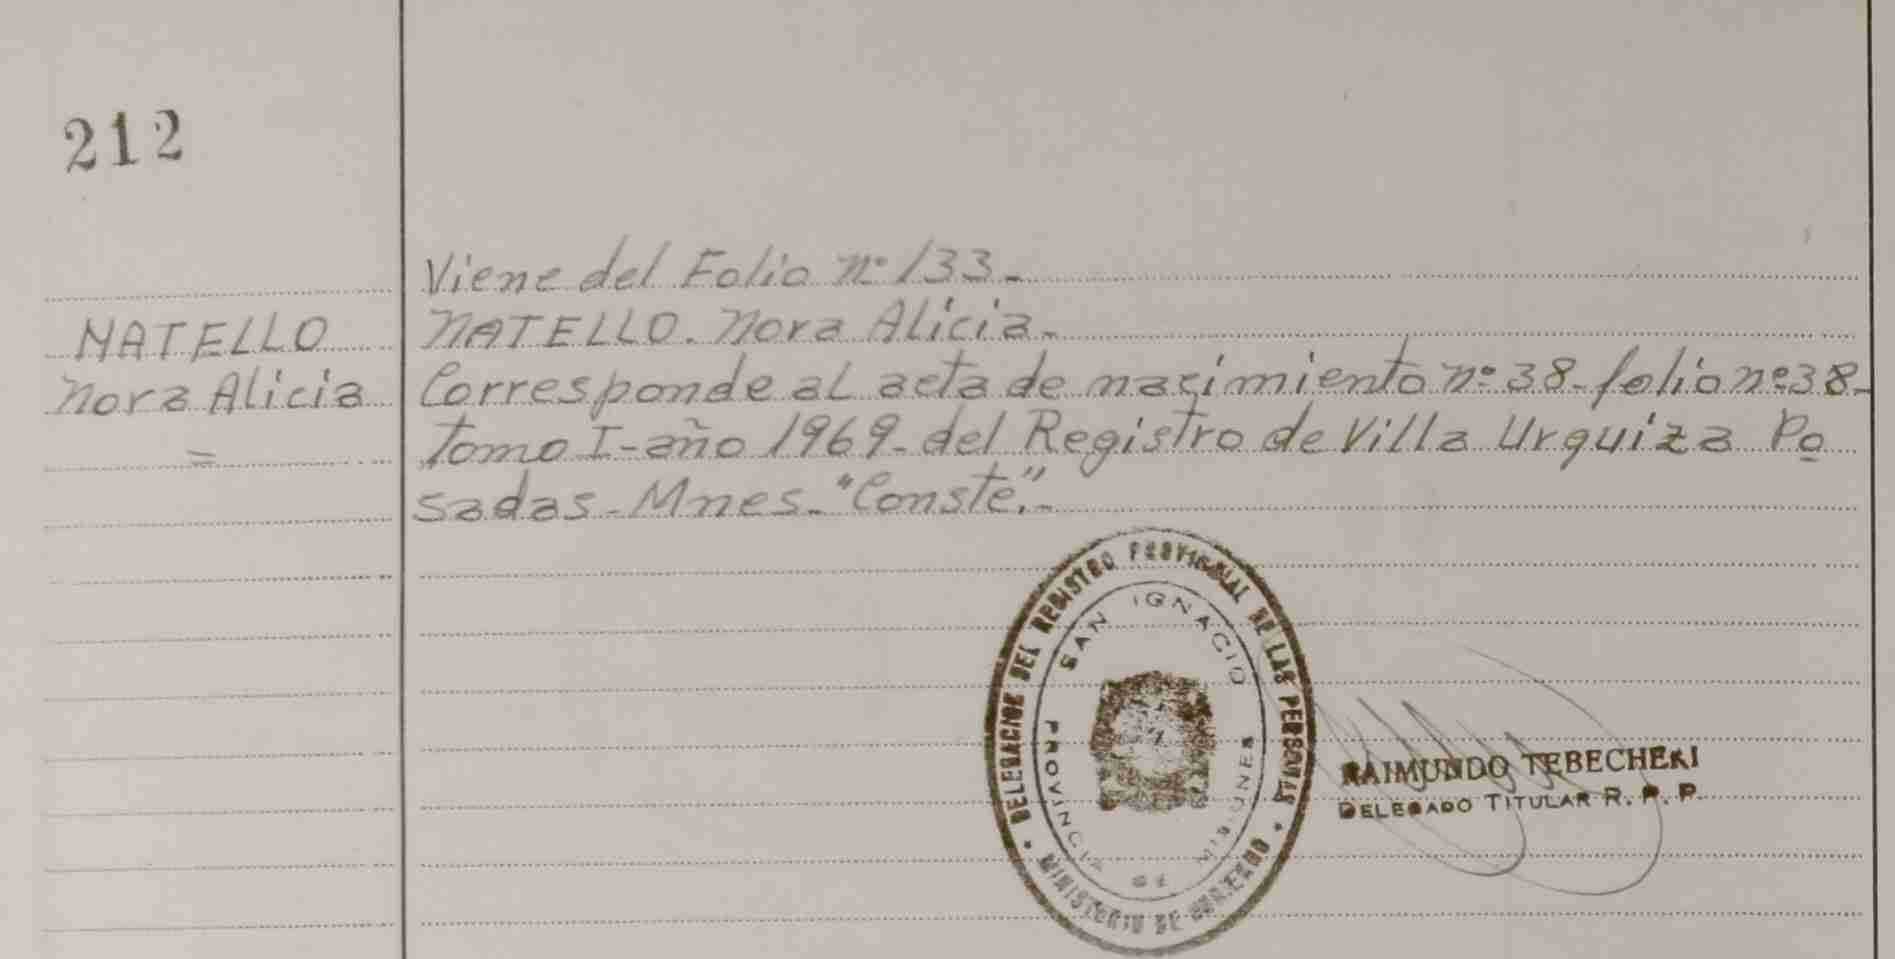 212
Viene del Folio nº 133.-
NATELLO
Nora Alicia
=
NATELLO. Nora Alicia.-
Corresponde al acta de nacimiento nº 38- folio nº 38-
Tomo I- año 1969- del Registro de Villa Urquiza Po
sadas- Mnes- "Conste".-
DELEGACION DEL REGISTRO PROVINCIAL DE LAS PERSONAS
* MINISTERIO DE GOBIERNO *
SAN IGNACIO
PROVINCIA DE MISIONES
RAIMUNDO TEBECHERI
DELEGADO TITULAR R. P. P.